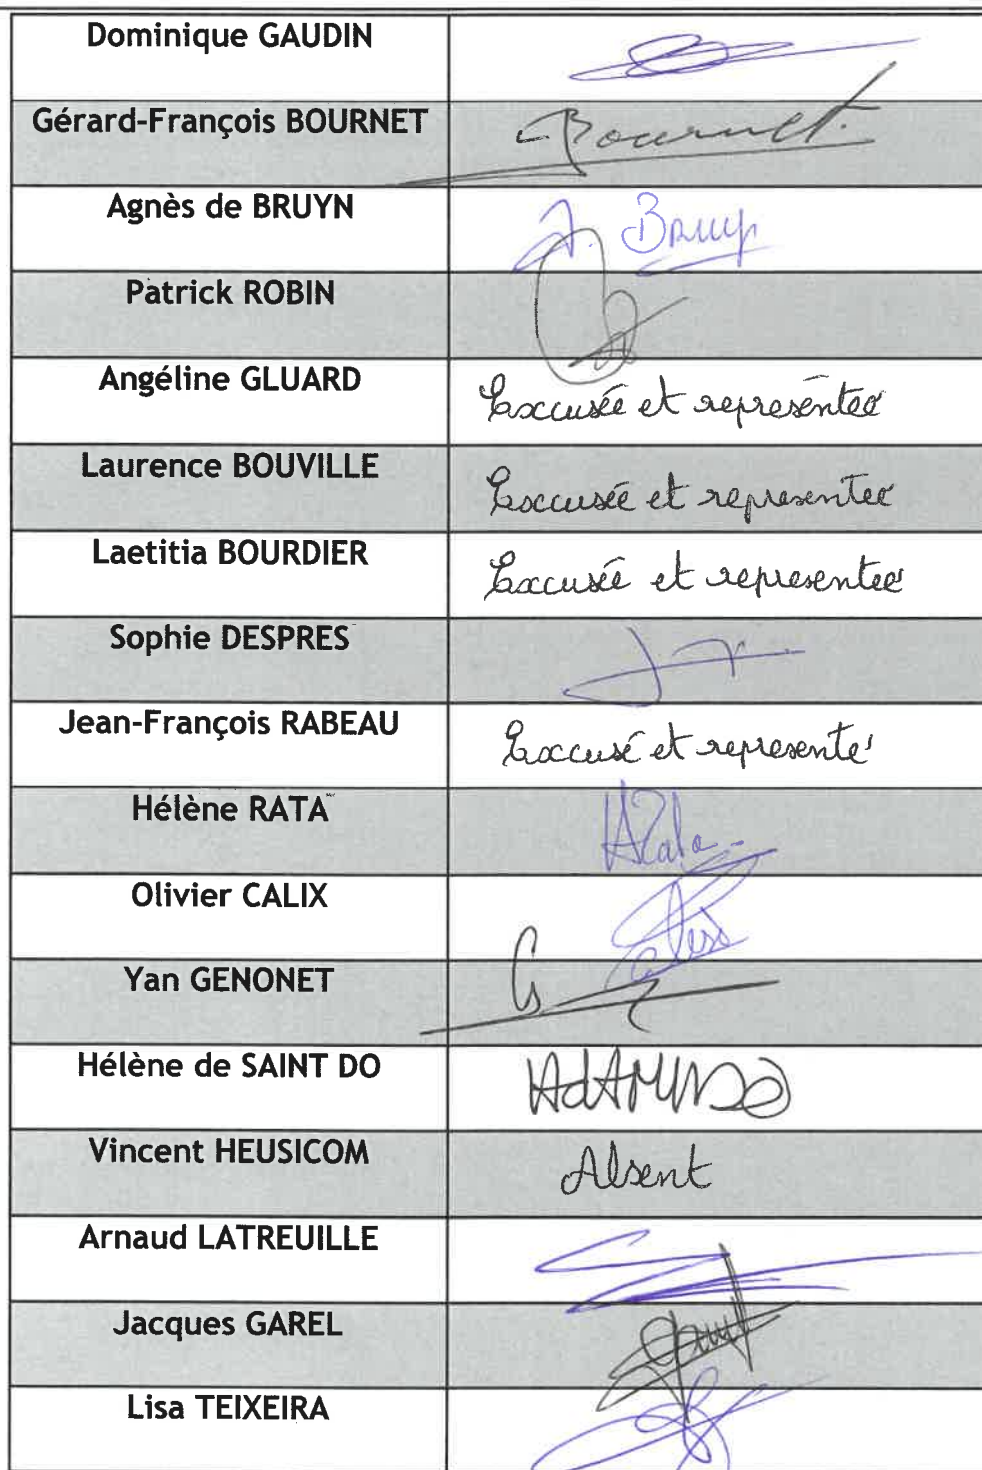 Dominique GAUDIN
Gérard-François BOURNET
Bournet
Agnès de BRUYN
A. Bruyn
Patrick ROBIN
Angéline GLUARD
Excusée et représentée
Laurence BOUVILLE
Excusée et representée
Laetitia BOURDIER
Excusée et representée
Sophie DESPRES
Jean-François RABEAU
Excusé et representé
Hélène RATA
HRata
Olivier CALIX
Yan GENONET
Hélène de SAINT DO
Vincent HEUSICOM
Absent
Arnaud LATREUILLE
Jacques GAREL
Lisa TEIXEIRA